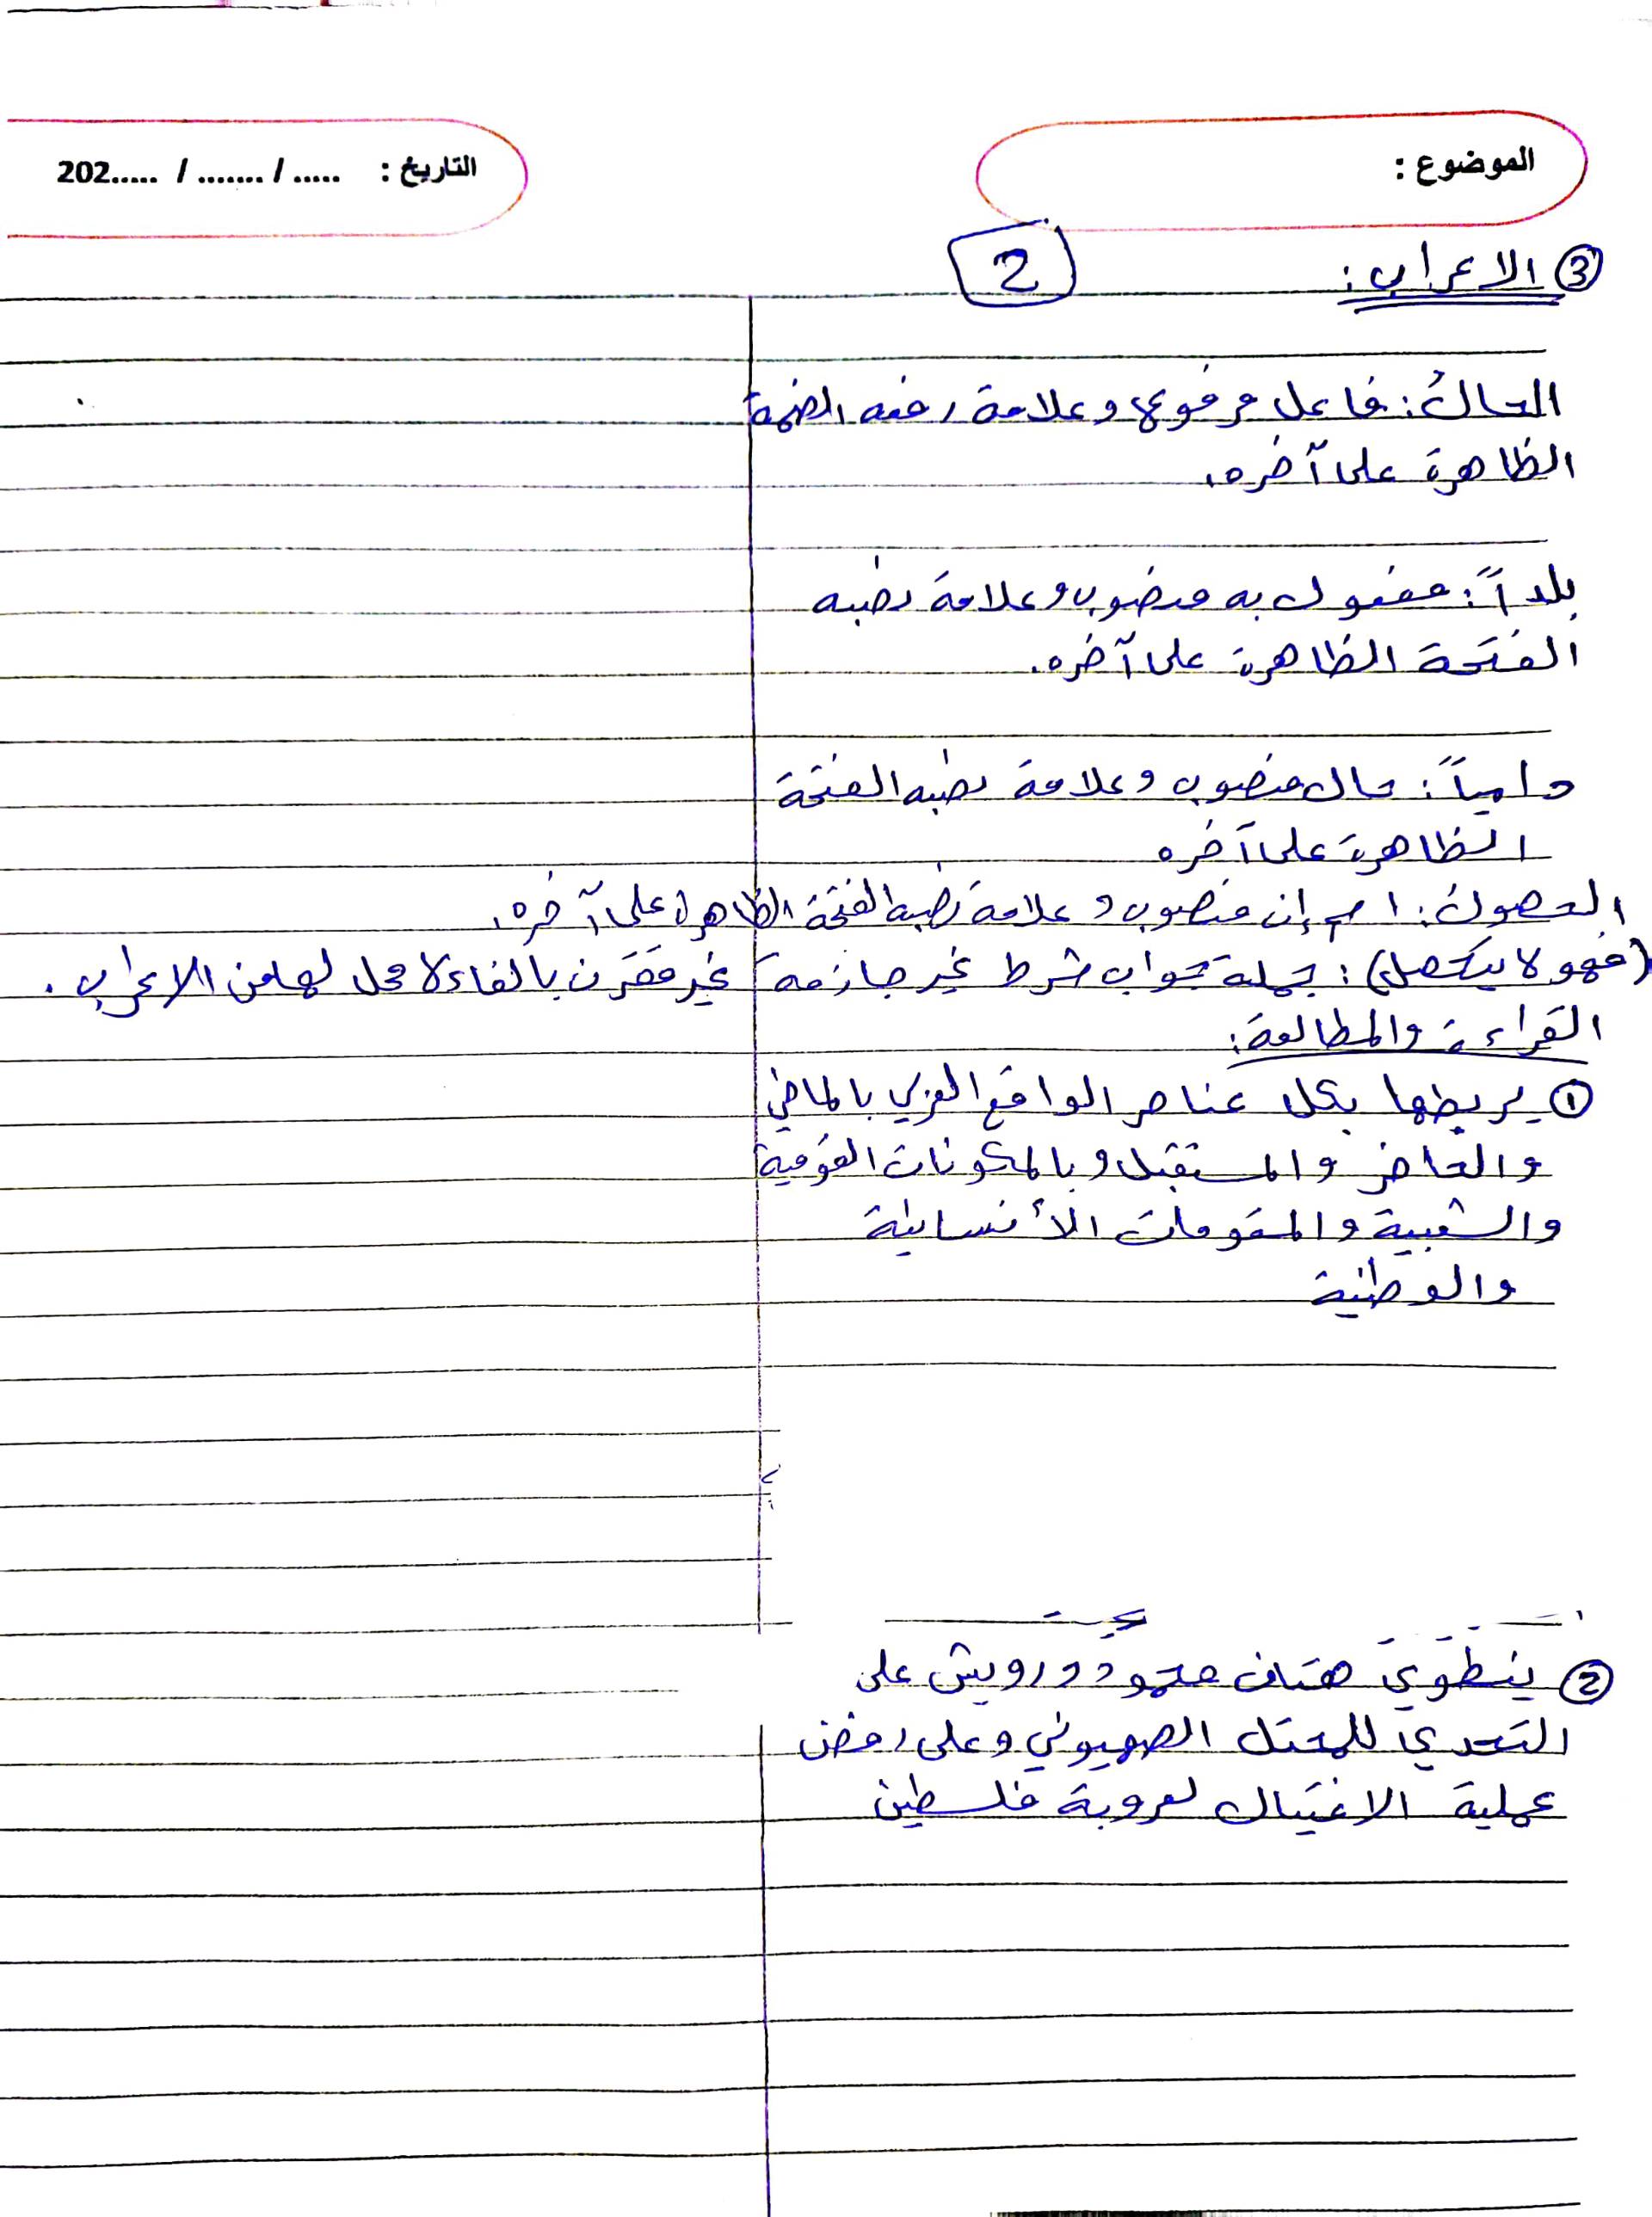 الموضوع :
التاريخ : ..... / ....... / .....202
2
③ الاعراب :
الحالُ : فاعل مرفوع وعلامة رفعه الضمة
الظاهرة على آخره.
بلداً : مفعول به منصوب وعلامة نصبه
الفتحة الظاهرة على آخره.
دامياً : حال منصوب وعلامة نصبه الفتحة
الظاهرة على آخره
الحصون : اسم إن منصوب وعلامة نصبه الفتحة الظاهرة على آخره.
(فهو لا يكتمل) : جملة جواب شرط غير جازمة غير مقترن بالفاء لا محل لها من الاعراب .
القراءة والمطالعة :
① يربطها بكل عناصر الواقع العربي بالماضي
والحاضر والمستقبل وبالمكونات القومية
والشعبية والمقومات الأنسانية
والوطنية
② ينطوي هتاف محمود درويش على
التحدي للمحتل الصهيوني وعلى رفض
عملية الاغتيال لعروبة فلسطين